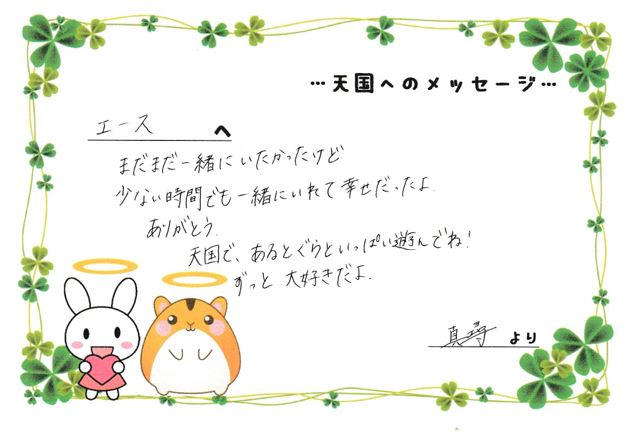 …天国へのメッセージ…
エース へ
まだまだ一緒にいたかったけど
少ない時間でも一緒にいれて幸せだったよ.
ありがとう.
天国で、あるとぐらといっぱい遊んでね!
ずっと 大好きだよ.
真尋 より